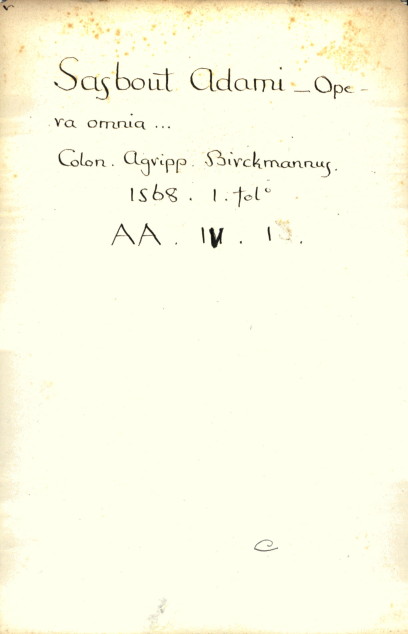 Sasbout Adami - Ope-
ra omnia ...
Colon. Agripp. Birckmannus.
1568. 1. folº
AA. IV. 1
C